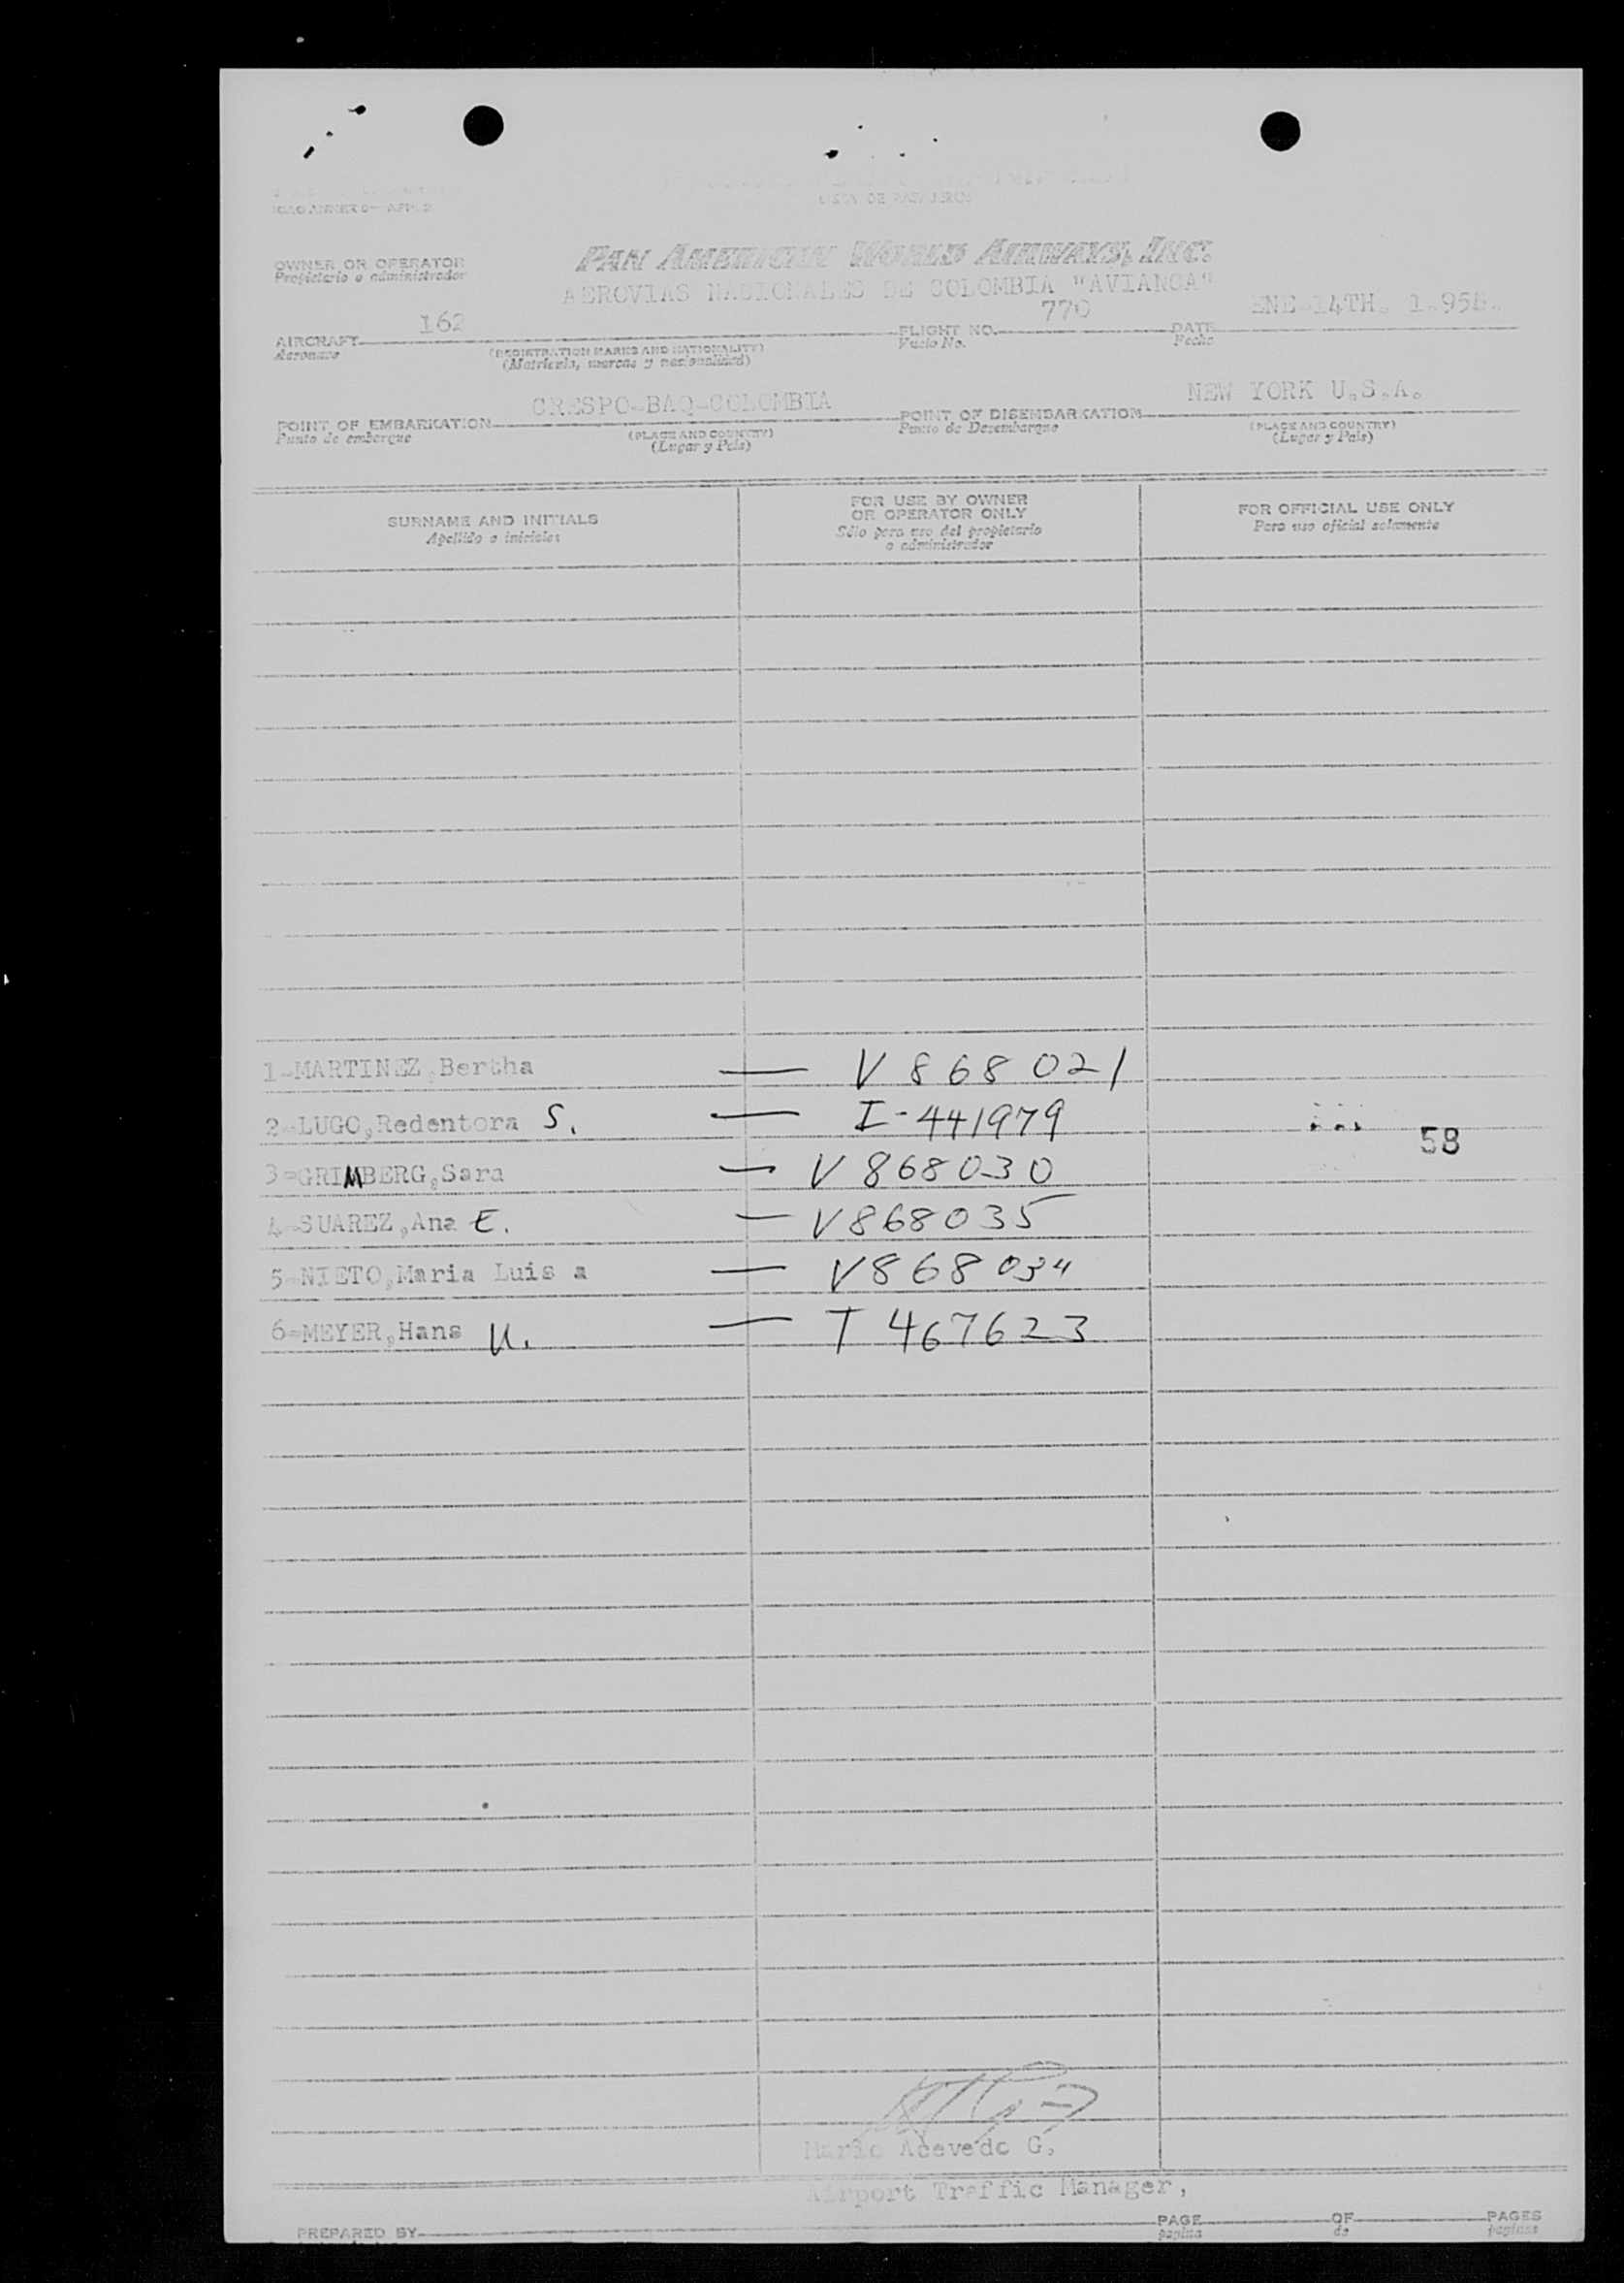 LISTA DE PASAJEROS
ICAO ANNEX 9—APP. 2
OWNER OR OPERATOR
Propietario o administrador
PAN AMERICAN WORLD AIRWAYS, INC.
AEROVIAS NACIONALES DE COLOMBIA "AVIANCA"
AIRCRAFT 162 FLIGHT NO. 770 DATE ENE-14TH. 1.958.
Aeronave (REGISTRATION MARKS AND NATIONALITY) Vuelo No. Fecha
(Matrícula, marcas y nacionalidad)
POINT OF EMBARKATION CRESPO-BAQ-COLOMBIA POINT OF DISEMBARKATION NEW YORK U.S.A.
Punto de embarque (PLACE AND COUNTRY) Punto de Desembarque (PLACE AND COUNTRY)
(Lugar y País) (Lugar y País)
SURNAME AND INITIALS FOR USE BY OWNER OR OPERATOR ONLY FOR OFFICIAL USE ONLY
Apellido e iniciales Sólo para uso del propietario o administrador Para uso oficial solamente
1-MARTINEZ,Bertha — V 868 021
2-LUGO,Redentora S. — I-441979
58
3-GRIMBERG,Sara — V 868030
4-SUAREZ,Ana E. — V868035
5-NIETO,Maria Luis a — V868034
6-MEYER,Hans U. — T 467623
Mario Acevedo G.
Airport Traffic Manager,
PREPARED BY PAGE OF PAGES
página de páginas